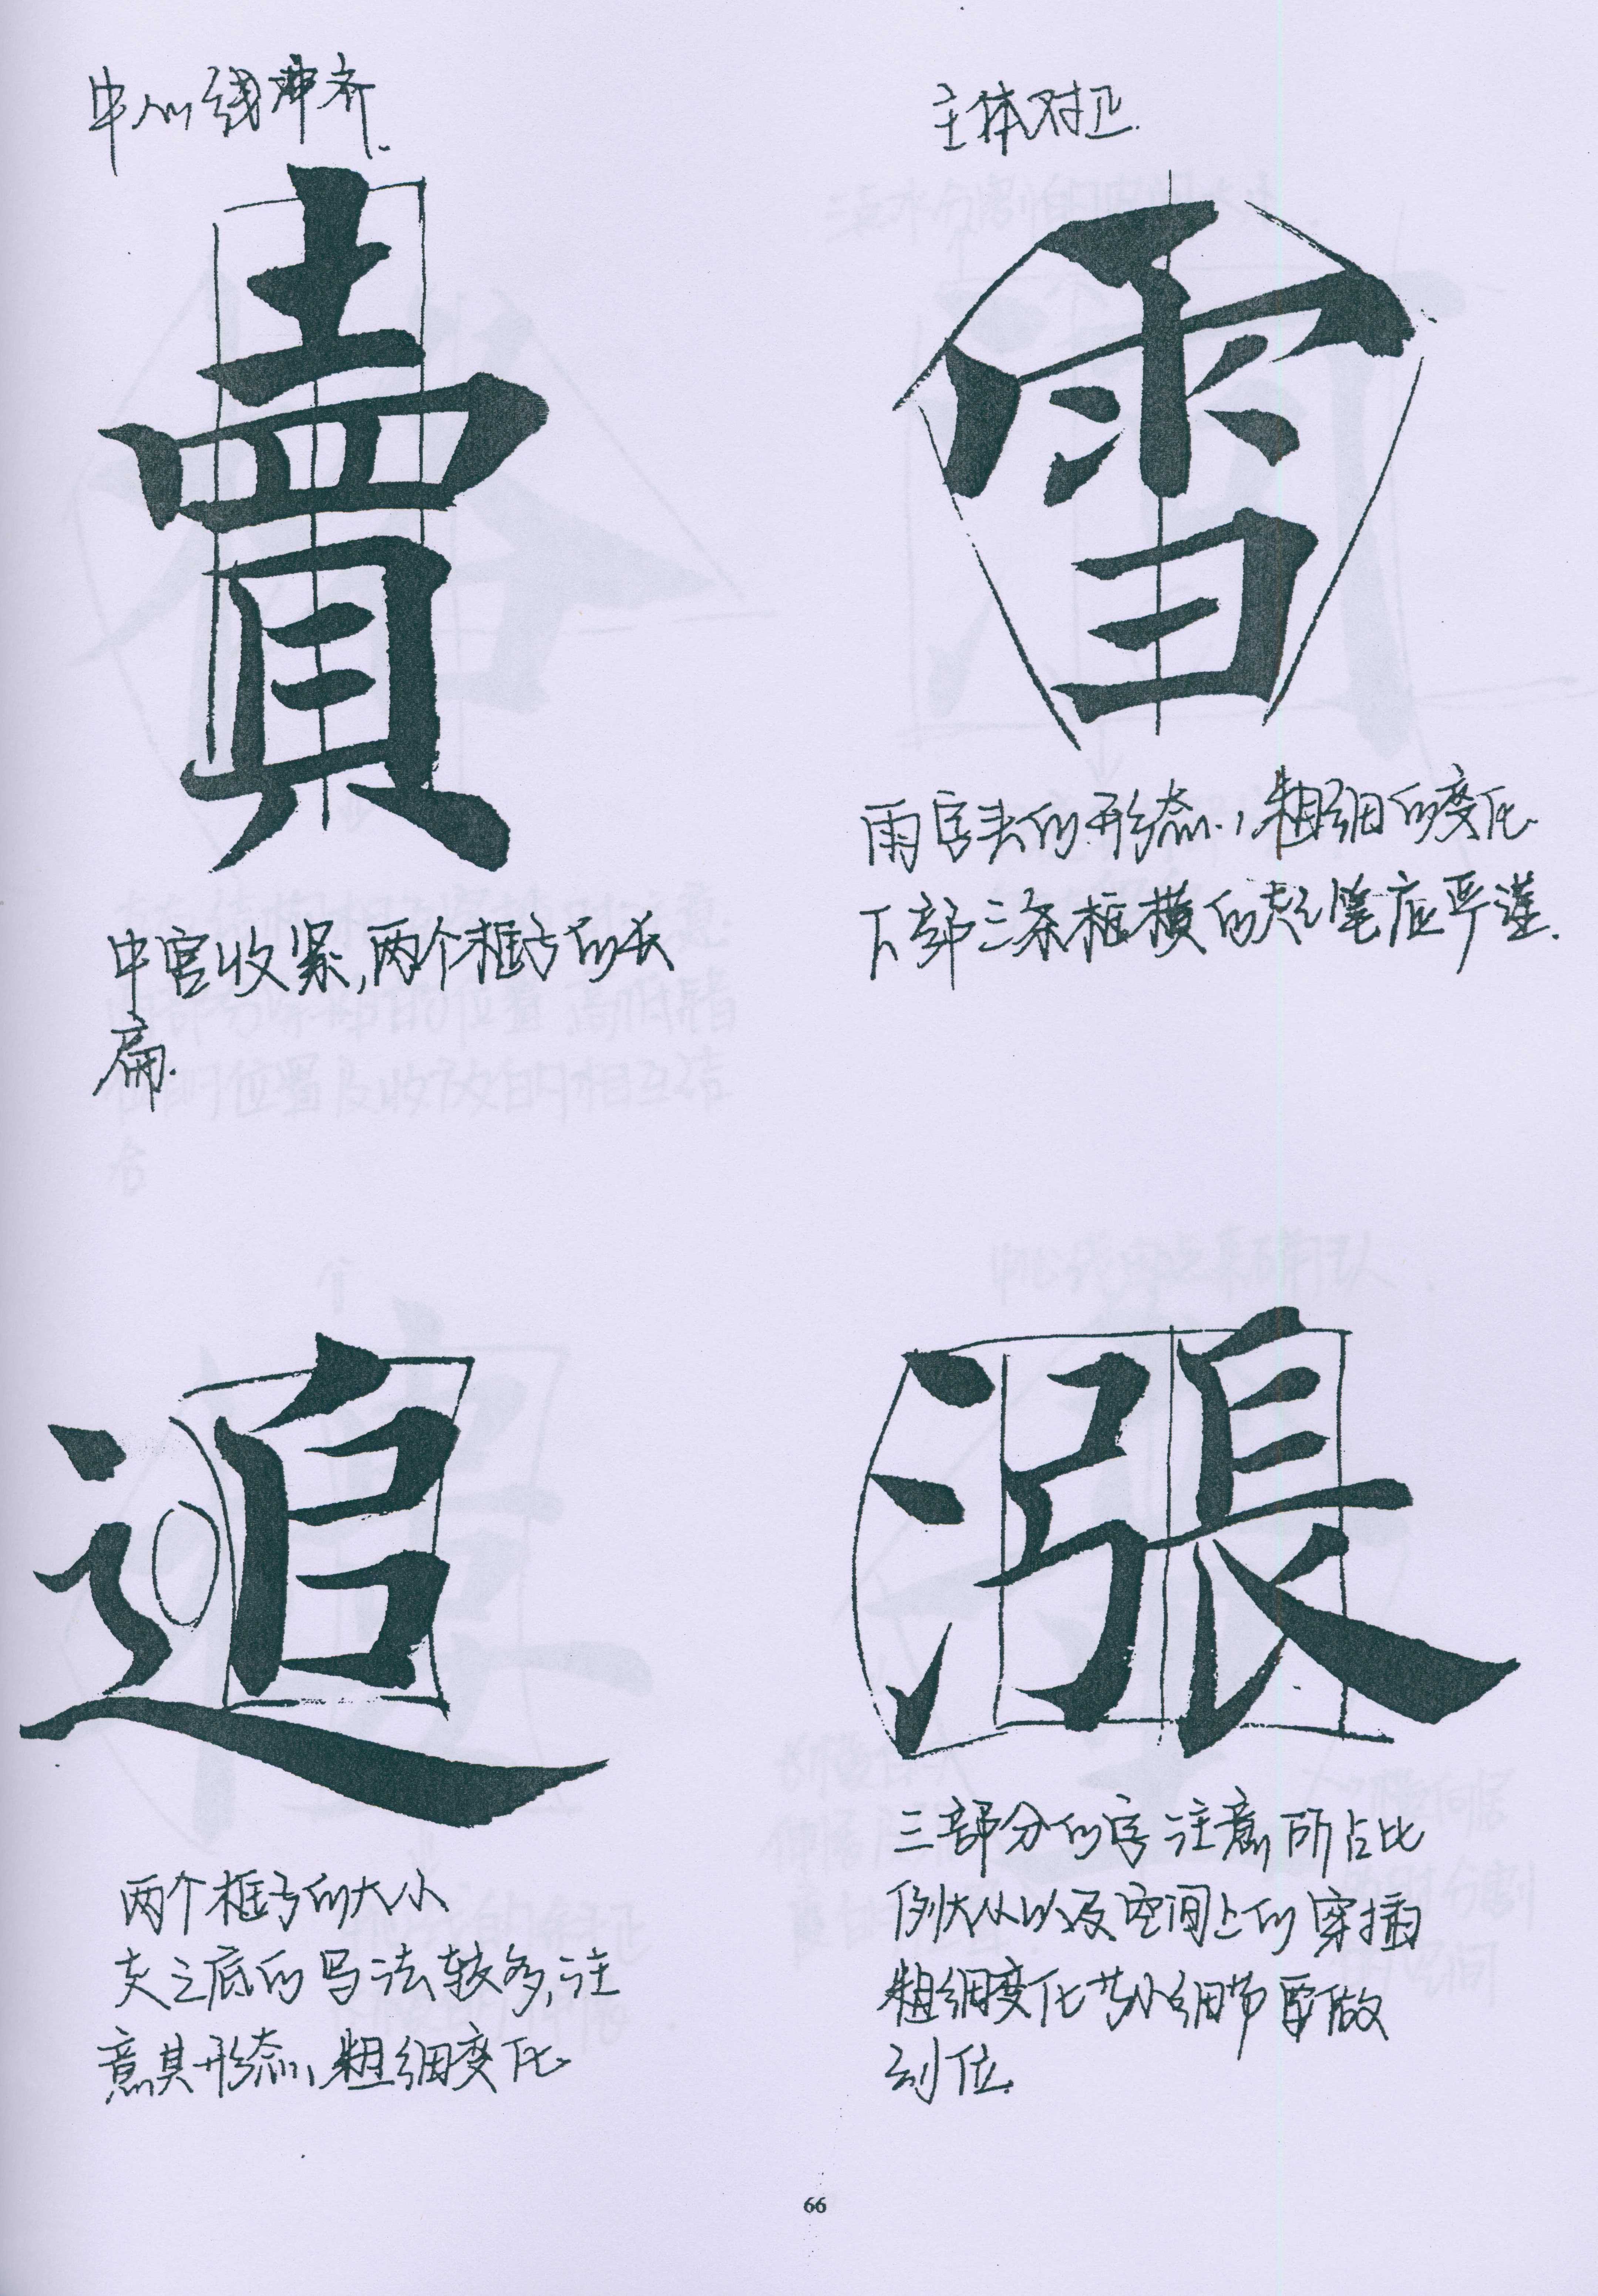 中心线冲齐.
賣
中宫收紧,两个框子的长
扁.
主体对正.
雪
雨字头的形态、粗细的变化
下部三条框横的起笔应严谨.
追
两个框子的大小
走之底的写法较多,注
意其形态、粗细变化
漲
三部分的字注意所占比
例大小以及空间上的穿插
粗细变化等小细节要做
到位.
66